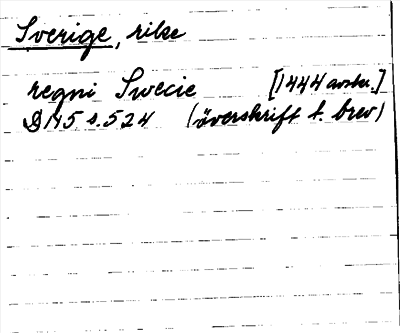 Sverige, rike
regni Swecie [1444 avskr.]
D 145 s. 524 (överskrift t. brev)